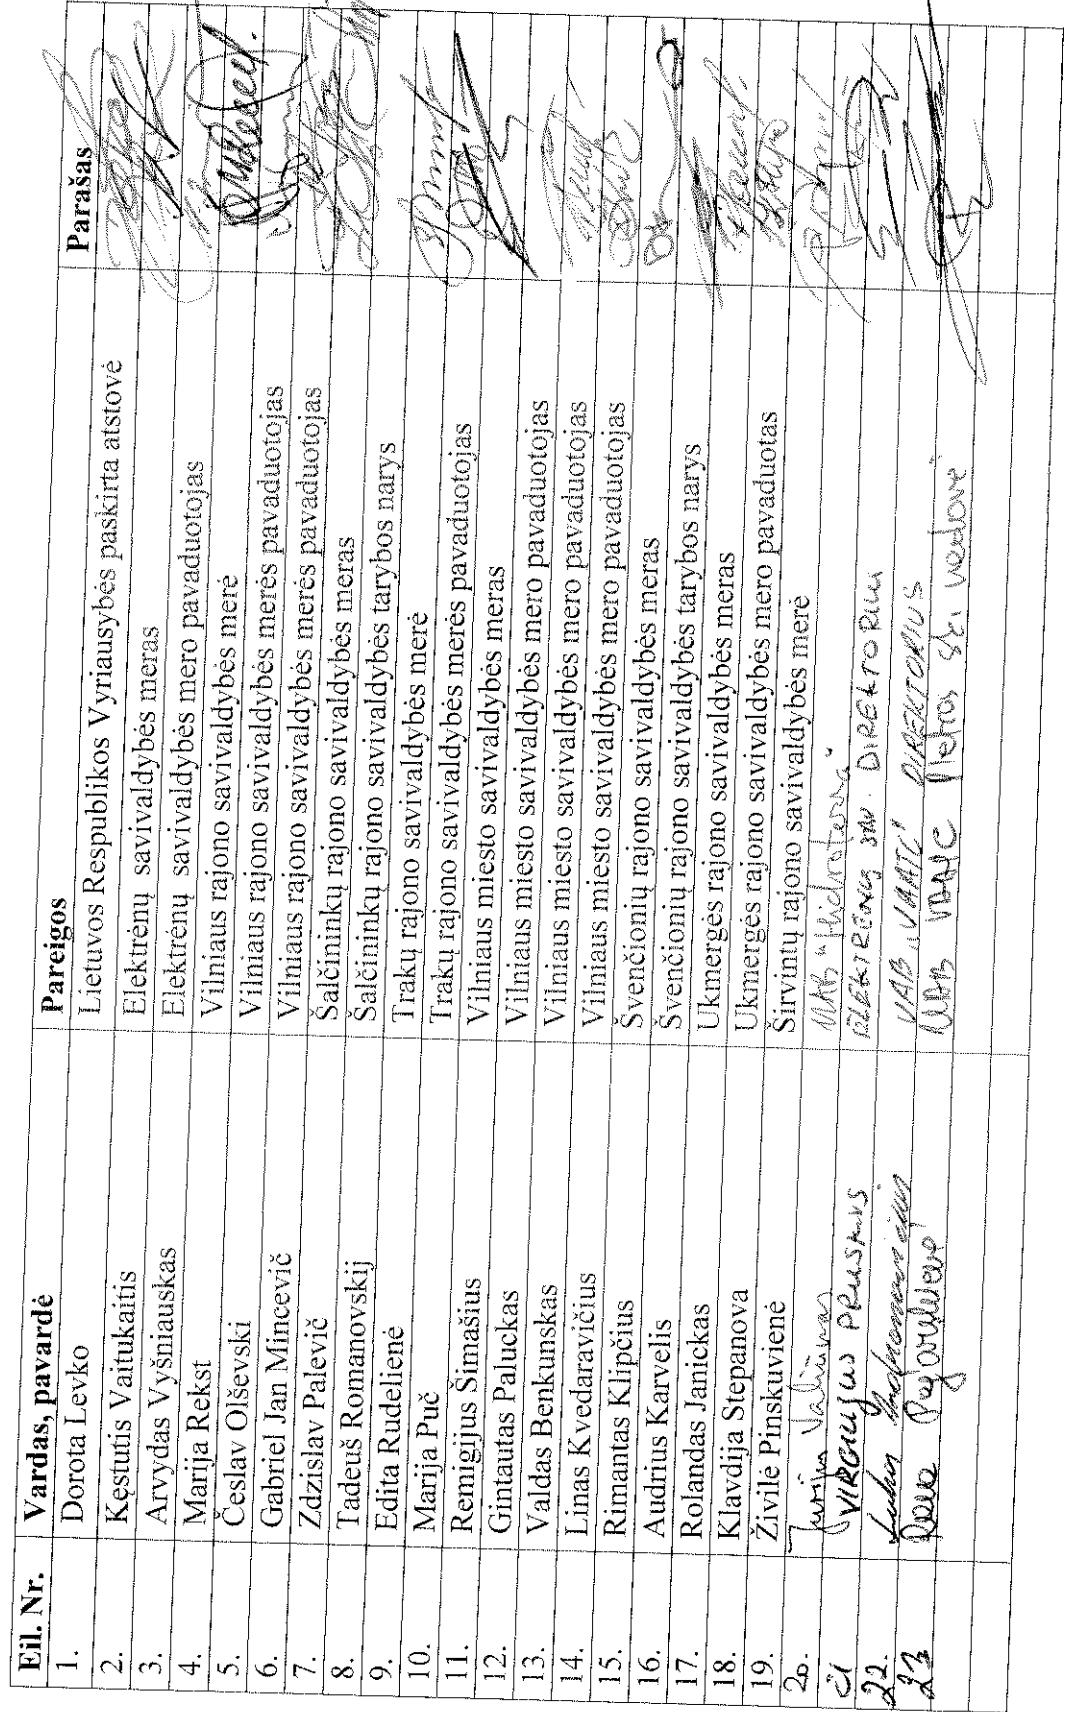 Eil. Nr. Vardas, pavardė Pareigos Parašas
1. Dorota Levko Lietuvos Respublikos Vyriausybės paskirta atstovė
2. Kęstutis Vaitukaitis Elektrėnų savivaldybės meras
3. Arvydas Vyšniauskas Elektrėnų savivaldybės mero pavaduotojas
4. Marija Rekst Vilniaus rajono savivaldybės merė
5. Česlav Olševski Vilniaus rajono savivaldybės merės pavaduotojas
6. Gabriel Jan Mincevič Vilniaus rajono savivaldybės merės pavaduotojas
7. Zdzislav Palevič Šalčininkų rajono savivaldybės meras
8. Tadeuš Romanovskij Šalčininkų rajono savivaldybės tarybos narys
9. Edita Rudelienė Trakų rajono savivaldybės merė
10. Marija Puč Trakų rajono savivaldybės merės pavaduotojas
11. Remigijus Šimašius Vilniaus miesto savivaldybės meras
12. Gintautas Paluckas Vilniaus miesto savivaldybės mero pavaduotojas
13. Valdas Benkunskas Vilniaus miesto savivaldybės mero pavaduotojas
14. Linas Kvedaravičius Vilniaus miesto savivaldybės mero pavaduotojas
15. Rimantas Klipčius Švenčionių rajono savivaldybės meras
16. Audrius Karvelis Švenčionių rajono savivaldybės tarybos narys
17. Rolandas Janickas Ukmergės rajono savivaldybės meras
18. Klavdija Stepanova Ukmergės rajono savivaldybės mero pavaduotas
19. Živilė Pinskuvienė Širvintų rajono savivaldybės merė
20. Jurijus Valiūnas UAB "Hidroterra"
21 VIRGILIJUS PRUSKUS ELEKTRĖNŲ SAV. DIREKTORIUS
22. UAB "VAATC" DIREKTORIUS
23 Rasa UAB VAATC Plėtros sk. vedovė